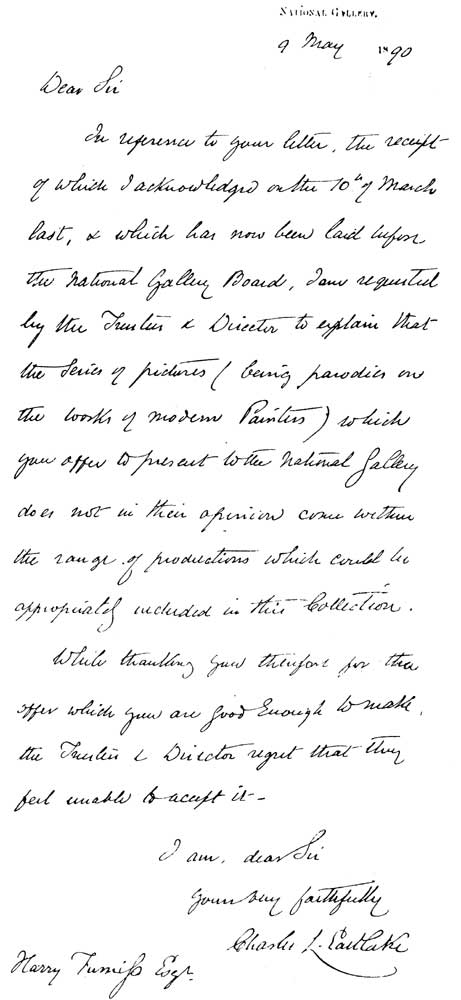 NATIONAL GALLERY.
9 May 1890
Dear Sir
In reference to your letter, the receipt
of which I acknowledged on the 10th of March
last, & which has now been laid before
the National Gallery Board, I am requested
by the Trustees & Director to explain that
the Series of pictures (being parodies on
the works of modern Painters) which
you offer to present to the National Gallery
does not in their opinion come within
the range of productions which could be
appropriately included in this Collection.
While thanking you therefore for the
offer which you are good enough to make,
the Trustees & Director regret that they
feel unable to accept it—
I am, dear Sir
Yours very faithfully
Charles L. Eastlake
Harry Furniss Esqr.